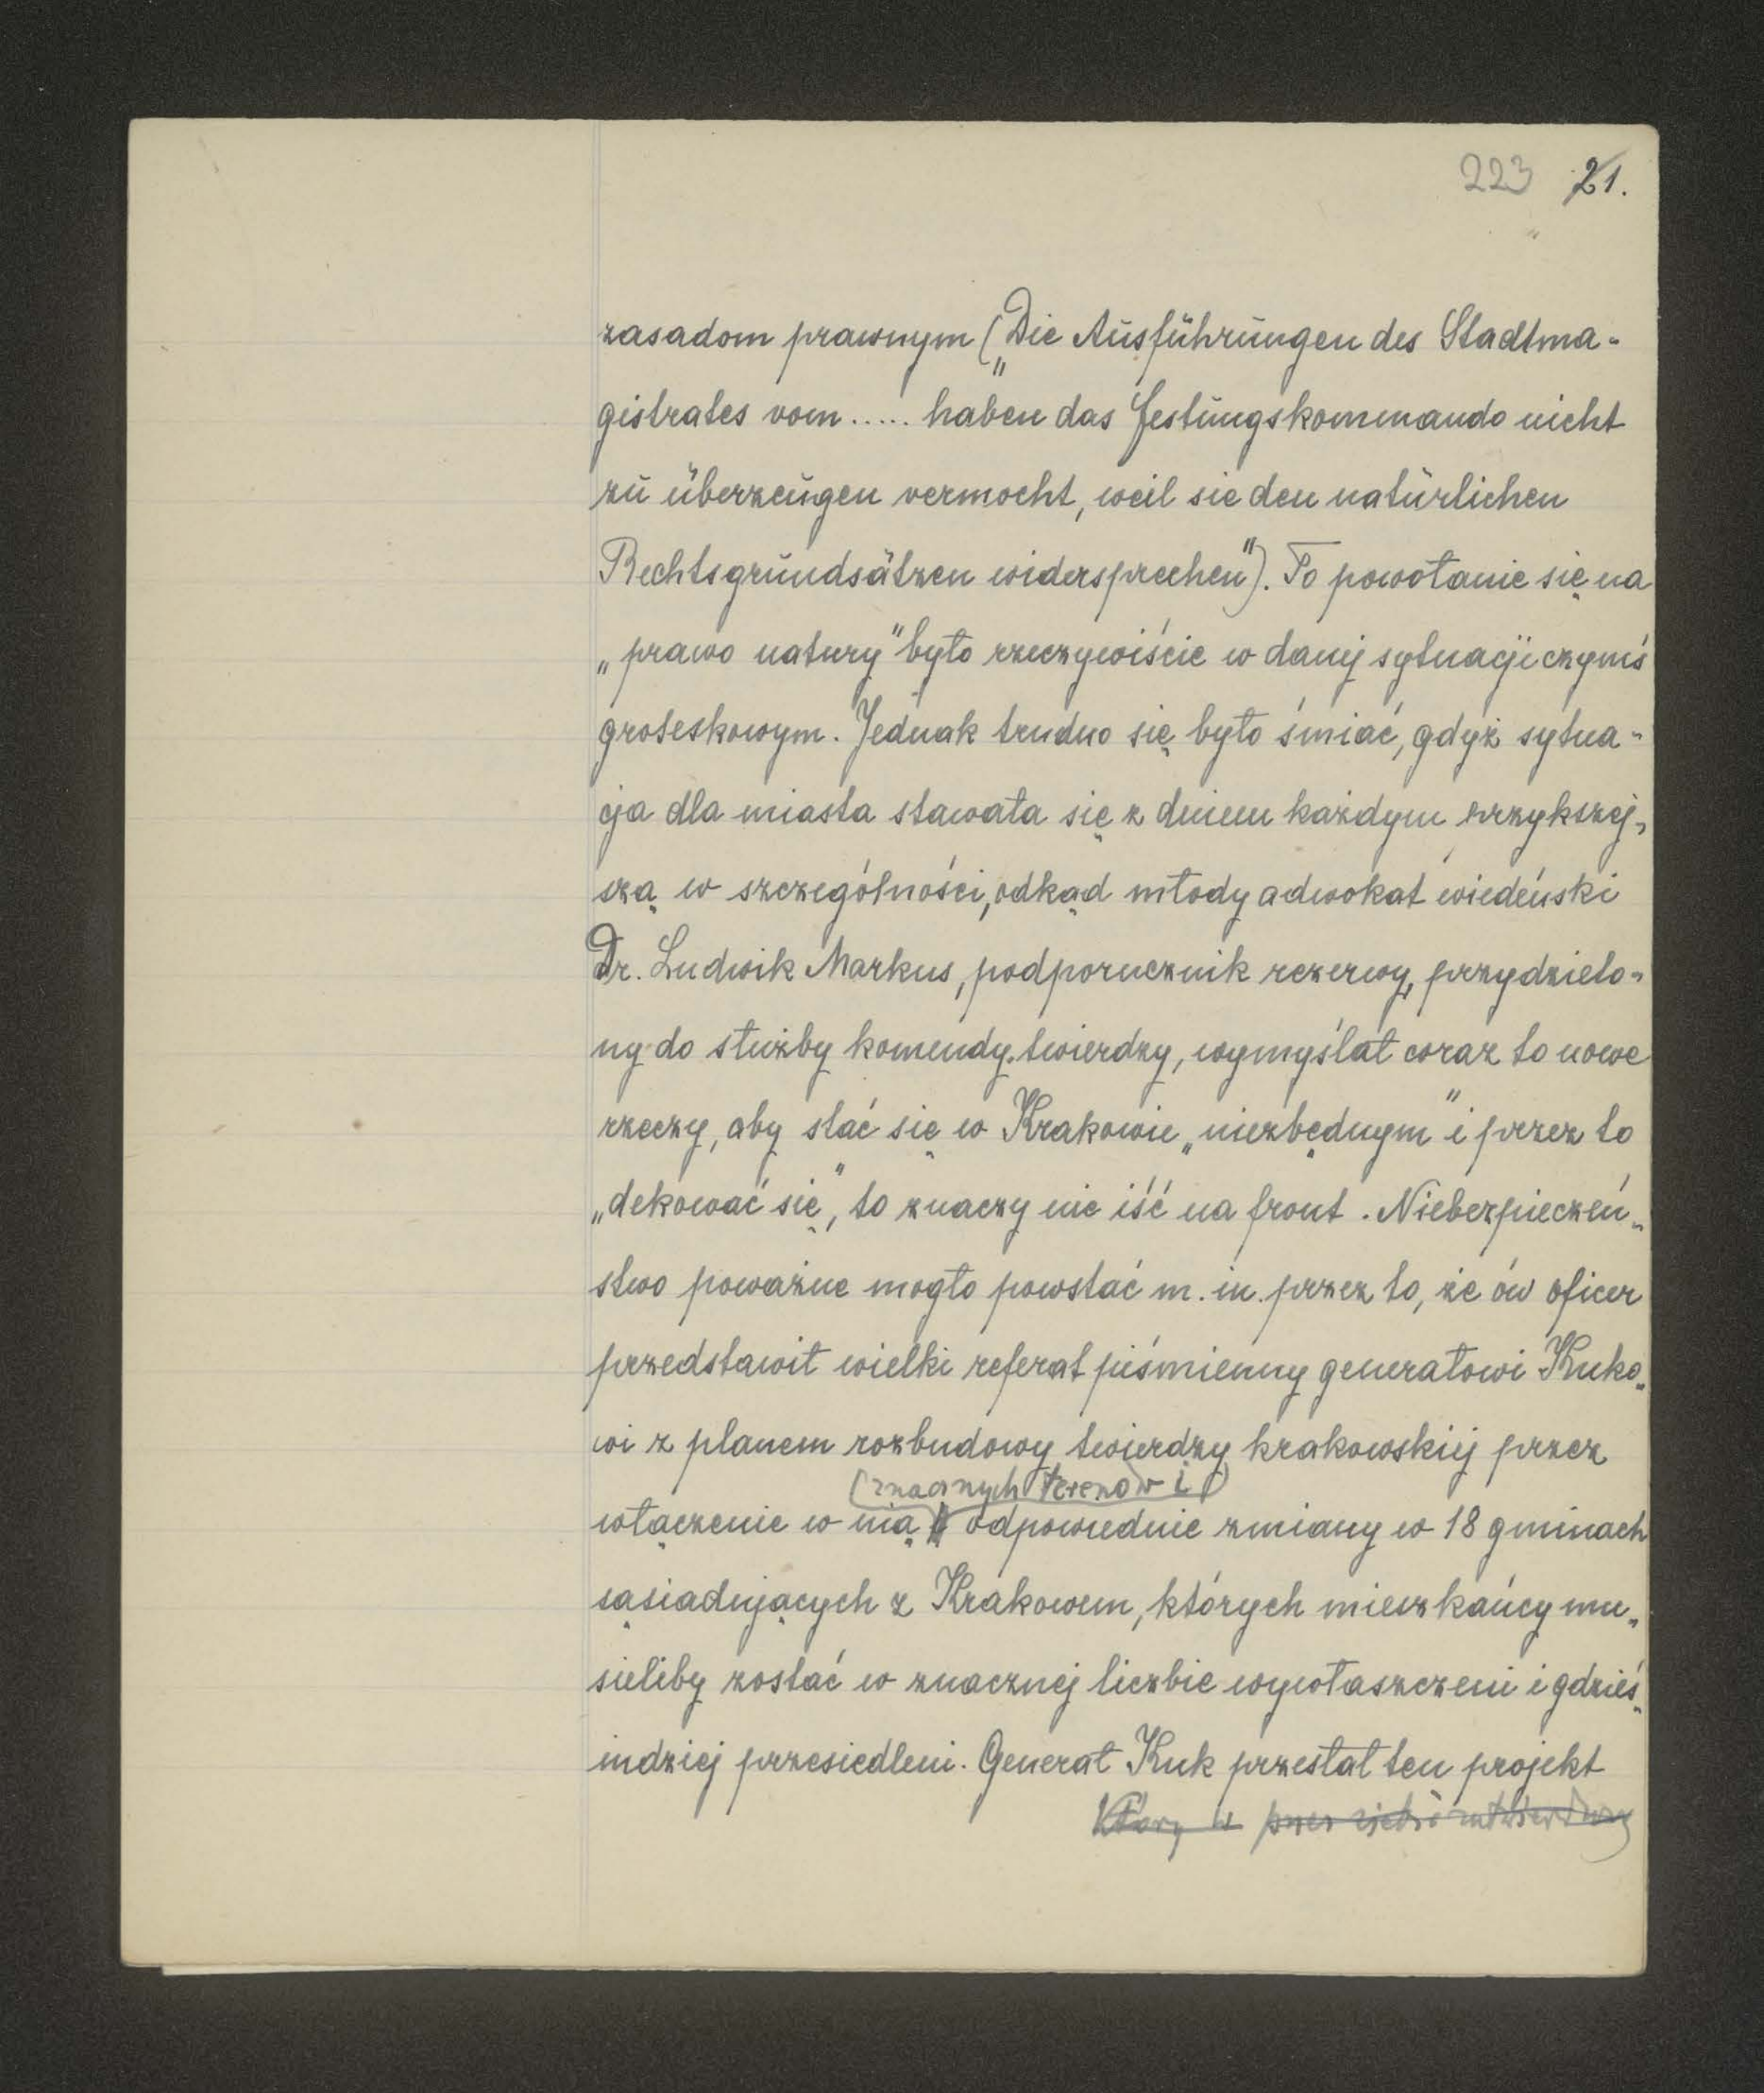 223 21.
zasadom prawnym („Die Ausführungen des Stadtma-
gistrates vom ..... haben das Festungskommando nicht
zu überzeugen vermocht, weil sie den natürlichen
Rechtsgrundsätzen widersprechen"). To powołanie się na
„prawo natury" było rzeczywiście w danej sytuacji czymś
groteskowym. Jednak trudno się było śmiać, gdyż sytua-
cja dla miasta stawała się z dniem każdym przykszej-
szą w szczególności, odkąd młody adwokat wiedeński
Dr. Ludwik Markus, podporucznik rezerwy, przydzielo-
ny do służby komendy twierdzy, wymyślał coraz to nowe
rzeczy, aby stać się w Krakowie „niezbędnym" i przez to
„dekować się", to znaczy nie iść na front. Niebezpieczeń-
stwo poważne mogło powstać m. in. przez to, że ów oficer
przedstawił wielki referat piśmienny generałowi Kuko-
wi z planem rozbudowy twierdzy krakowskiej przez
(znacznych terenów i)
włączenie w nią odpowiednie zmiany w 18 gminach
sąsiadujących z Krakowem, których mieszkańcy mu-
sieliby zostać w znacznej liczbie wywłaszczeni i gdzieś-
indziej przesiedleni. Generał Kuk przesłał ten projekt
który przez siebie